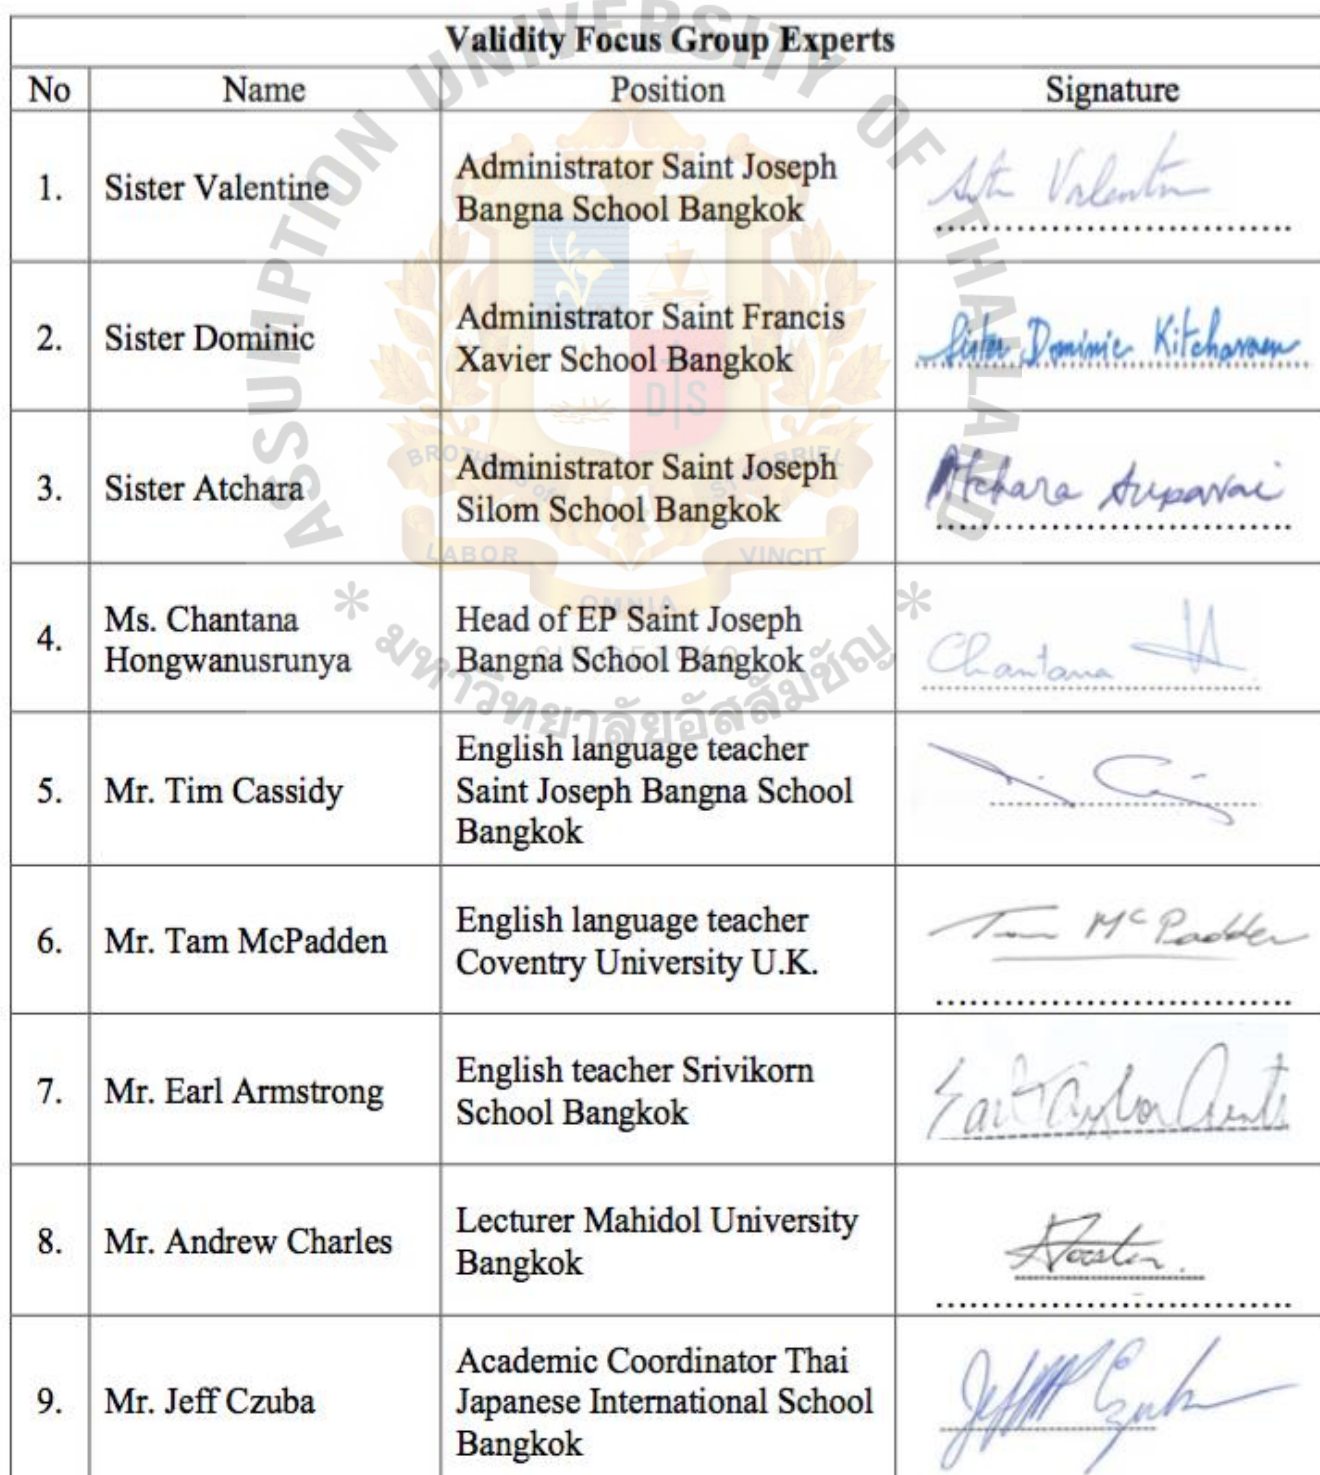 Validity Focus Group Experts
No Name Position Signature
1. Sister Valentine Administrator Saint Joseph
Bangna School Bangkok
Valentin
2. Sister Dominic Administrator Saint Francis
Xavier School Bangkok
Sister Dominic Kitcharoen
3. Sister Atchara Administrator Saint Joseph
Silom School Bangkok
Atchara Suparai
4. Ms. Chantana
Hongwanusrunya
Head of EP Saint Joseph
Bangna School Bangkok
Chantana H.
5. Mr. Tim Cassidy English language teacher
Saint Joseph Bangna School
Bangkok
6. Mr. Tam McPadden English language teacher
Coventry University U.K.
Tam McPadden
7. Mr. Earl Armstrong English teacher Srivikorn
School Bangkok
Earl Taylor
8. Mr. Andrew Charles Lecturer Mahidol University
Bangkok
9. Mr. Jeff Czuba Academic Coordinator Thai
Japanese International School
Bangkok
Jeff Czuba
ASSUMPTION UNIVERSITY OF THAILAND
DS
BROTHERS OF ST GABRIEL
LABOR OMNIA VINCIT
มหาวิทยาลัยอัสสัมชัญ